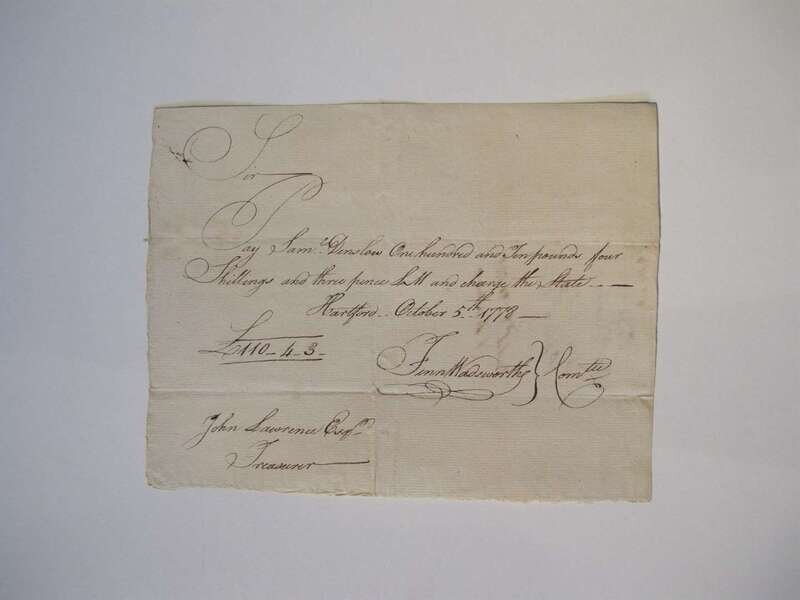 Sir
Pay Sam.l Dinslow One hundred and Ten pounds four
Shillings and three pence LM and charge the State - -
Hartford - October 5th 1778 -
£110 - 4 - 3 -
Fenn Wadsworth } Comtee
John Lawrence Esqr
Treasurer